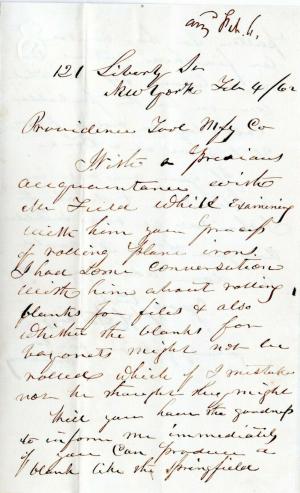 ansd Feb. 6.
121 Liberty St
New York Feb 4/62
Providence Tool Mfg Co
With a Previous
acquaintance with
Mr Field while Examining
with him your Process
of rolling plane irons,
I had some conversation
with him about rolling
blanks for files & also
whither the blanks for
bayonets might not be
rolled which if I mistake
not he thought they might
Will you have the goodness
to inform me immediately
if you can produce a
blank like the Springfield